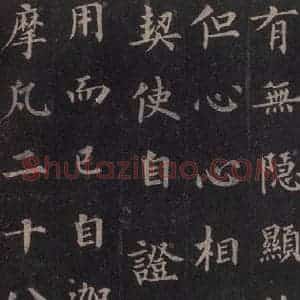 有無隱顯
但心心相
契使自證
用而已自迦
摩凡二十八
Shufaziliao.COM